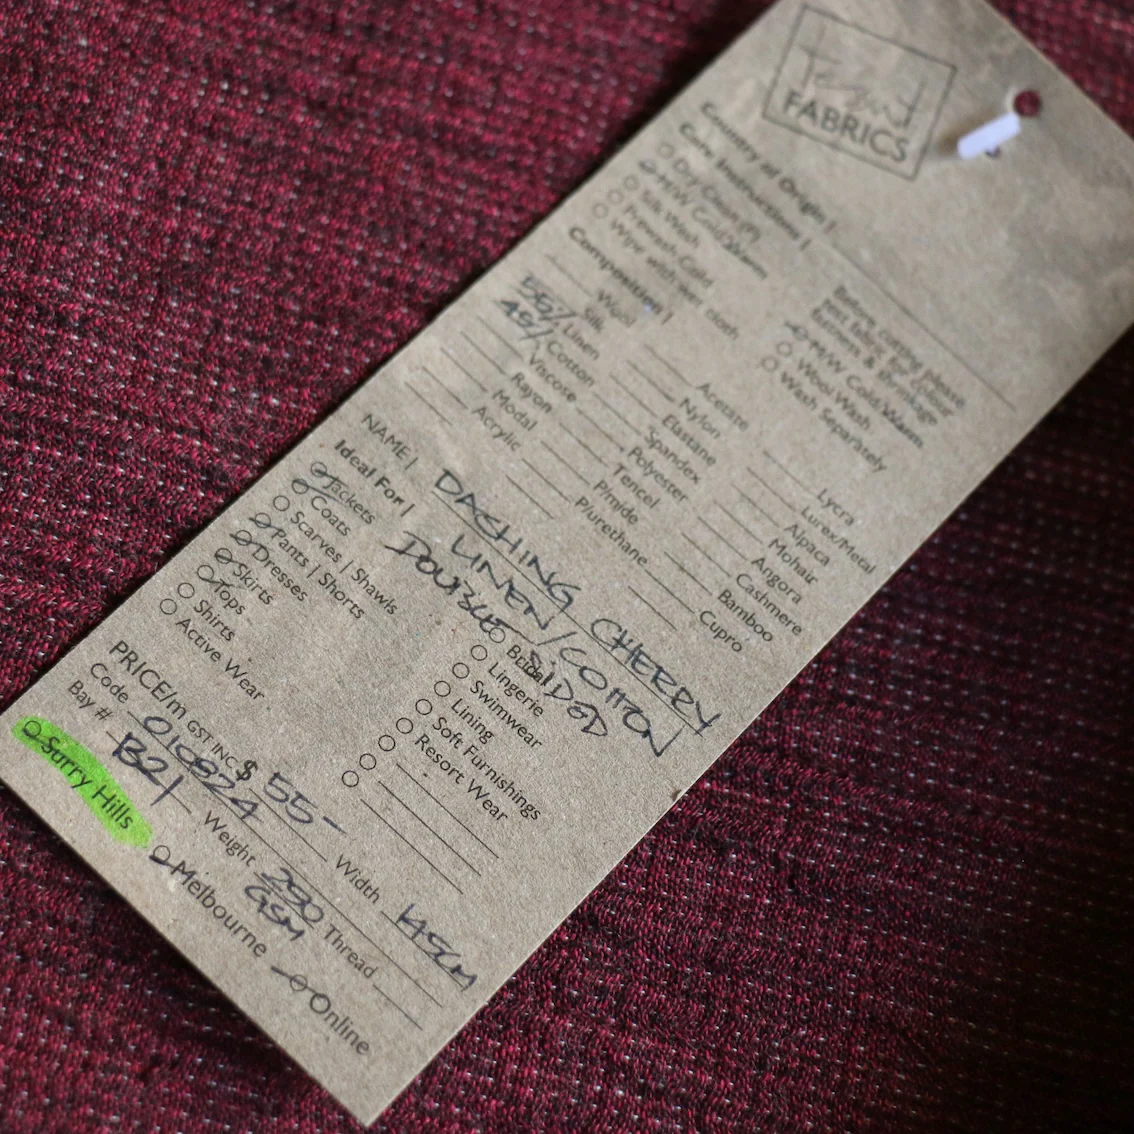 FABRICS
Country of Origin |
Care Instructions |
Dry Clean (P)
M/W Cold/Warm
Silk Wash
Prewash-Cold
Wipe with wet cloth
Before cutting please
test fabric for colour
fastness & shrinkage
M/W Cold/Warm
Wool Wash
Wash Separately
Composition |
Wool
Silk
55% Linen
45% Cotton
Viscose
Rayon
Modal
Acrylic
Acetate
Nylon
Elastane
Spandex
Polyester
Tencel
P/mide
P/urethane
Lycra
Lurex/Metal
Alpaca
Mohair
Angora
Cashmere
Bamboo
Cupro
NAME | DASHING CHEERY
LINEN/COTTON
DOUBLE SIDED
Ideal For |
Jackets
Coats
Scarves | Shawls
Pants | Shorts
Dresses
Skirts
Tops
Shirts
Active Wear
Bridal
Lingerie
Swimwear
Lining
Soft Furnishings
Resort Wear
PRICE/m GST INC. $ 55-
Code 010824 Width 145CM
Bay # B21 Weight 290 GSM Thread
Surry Hills Melbourne Online